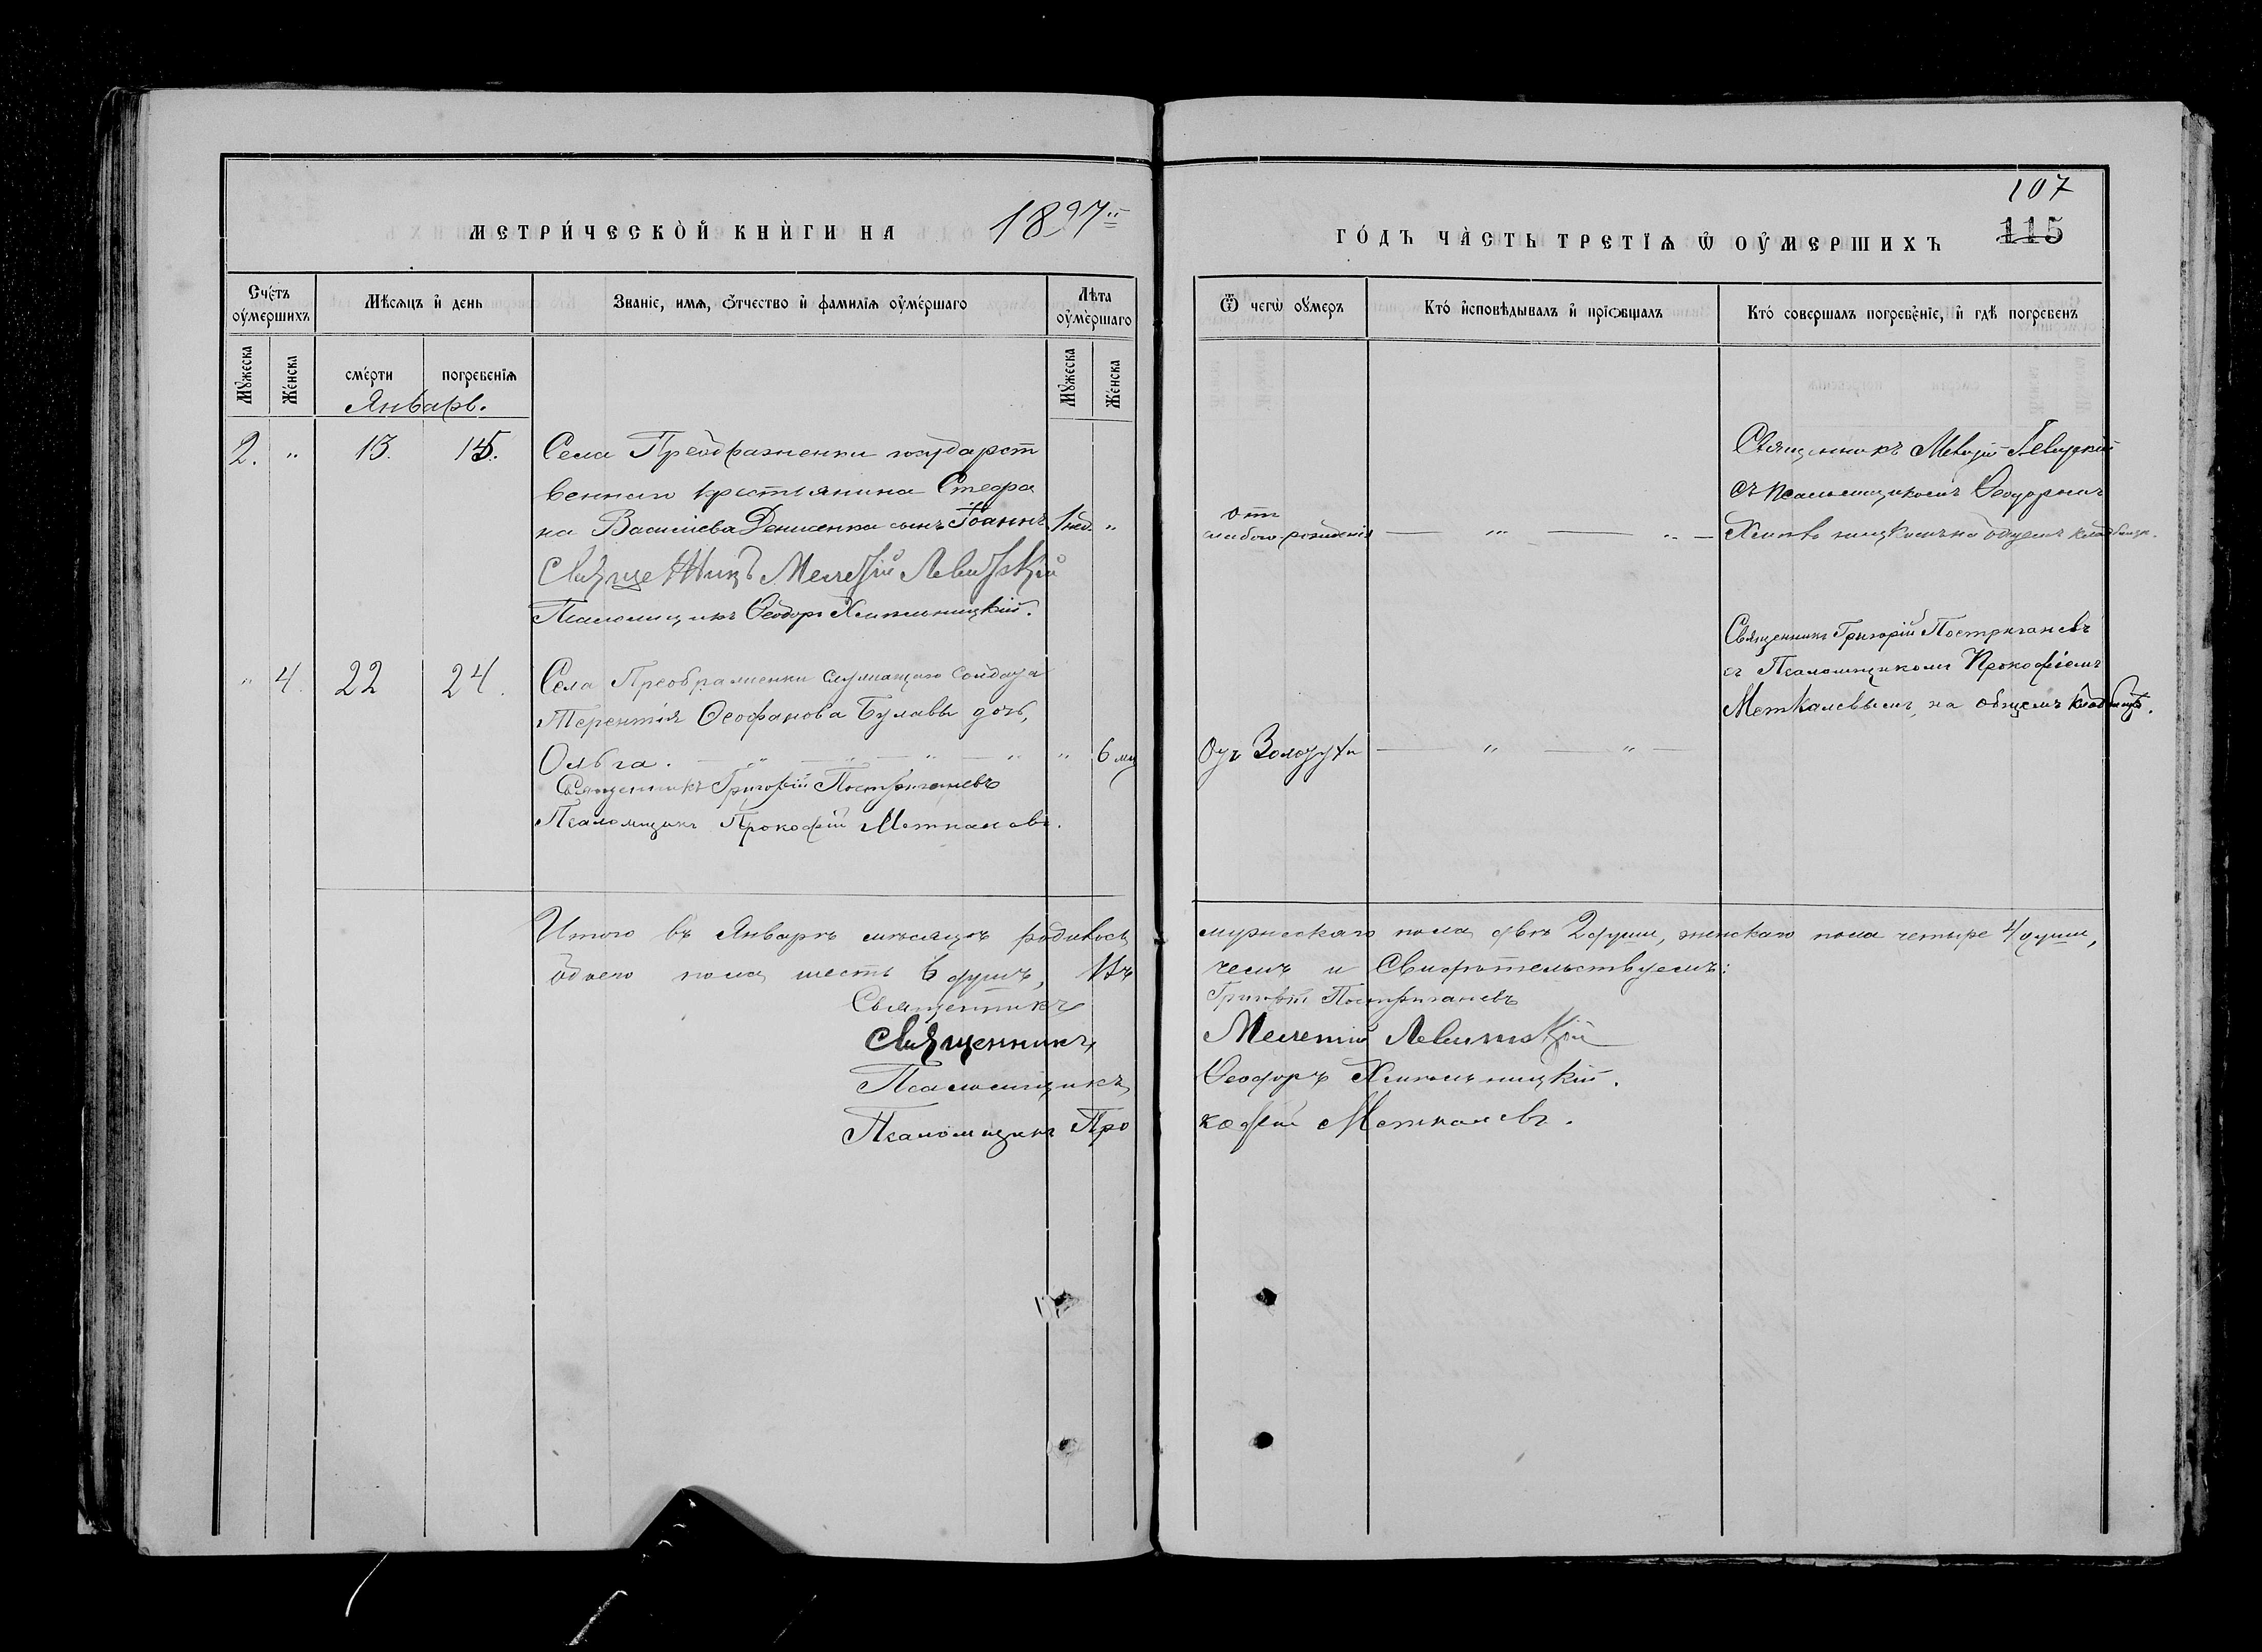 107
115
МЕТРИ́ЧЕСКОЙ КНИ́ГИ НА 1897й ГО́ДЪ ЧА́СТЬ ТРЕТІѦ Ѡ ОУ҆МЕРШИХЪ
Сче́тъ оу҆мершихъ
Мѣсѧцъ и҆ день
Званіе, имѧ, ѻ҆тчество и҆ фамиліѧ оу҆ме́ршаго
Лѣта оу҆ме́ршаго
Ѿ чегѡ̀ оу҆меръ
Кто́ и҆сповѣ́дывалъ и҆ прїѡбщалъ
Кто́ совершалъ погребе́ніе, и҆ гдѣ̀ погребенъ
Мꙋ́жеска
Же́нска
сме́рти
погребенїѧ
Мꙋ́жеска
Же́нска
Январь.
2. " 13. 15. Села Преображенки государст
венного крестьянина Стефа
на Васильева Денисенка сынъ Іоаннъ. 1 нед. "
Священникъ Мелетій Левитскій
Псаломщикъ Ѳеодоръ Хмельницкій.
отъ
слабого рожденія
Священникъ Левицкій
съ псаломщикомъ Ѳеодоромъ
на общемъ кладбищѣ.
" 4. 22 24. Села Преображенки служащаго солдата
Терентія Ѳеофанова Булавы дочь,
Ольга. " 6 мц
Священникъ Григорій Постригачевъ
Псаломщикъ Прокофій Меткалевъ.
Отъ Золотухи
Священникъ Григорій Постригачевъ
съ Псаломщикомъ Прокофіемъ
Меткалевымъ, на общемъ кладбищѣ.
Итого въ Январѣ мѣсяцѣ родилось мужескаго пола двѣ 2 души, женскаго пола четыре 4 души,
обоего пола шесть 6 душъ, въ чемъ и Свидѣтельствуемъ:
Священникъ Григорій Постригачевъ
Священникъ Мелетій Левитскій
Псаломщикъ Ѳеодоръ Хмельницкій.
Псаломщикъ Прокофій Меткалевъ.